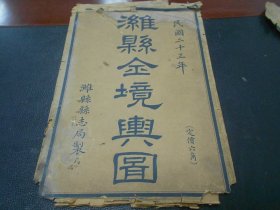 民國二十三年
濰縣全境輿圖
(定價六角)
濰縣縣志局製